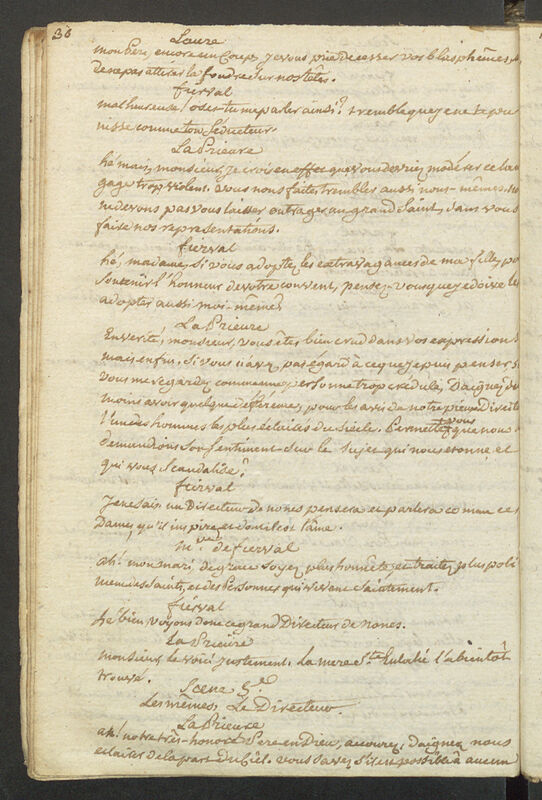 36
Laure
mon Père, encore un Coup, je vous prie de cesser vos blasphêmes, et
de ne pas attirer la foudre sur nos têtes.
furval
malheureuse! oses-tu me parler ainsi? tremble que je ne te pu
nisse comme ton Séducteur.
La Prieure
hé mais, monsieur, je crois en effet que vous devriez modérer ce lan
gage trop violent. vous nous faites trembler aussi nous-mêmes.
ne devons pas vous laisser outrager un grand Saint, sans vous
faire nos représentations.
furval
hé, madame, si vous adoptez les extravagances de ma fille, po
soutenir l'honneur de votre couvent, pensez-vous que je doive les
adopter aussi moi-même?
La Prieure
En vérité, monsieur, vous êtes bien crud dans vos expressions
mais enfin, si vous n'avez pas égard à ce que je puis penser, si
vous me regardez comme une personne trop crédule, Daignez du
moins avoir quelque déférence pour les avis de notre pieux Directe
l'un des hommes les plus éclairés du siècle. Permettez vous que nous
demandions son sentiment sur le sujet qui nous étonne, et
qui vous scandalise?
furval
Je ne sais. un Directeur de nones pensera et parlera comme ces
Dames, qu'il inspire, et dont il est l'âme.
Me. de furval
ah! mon mari, de grace soyez plus honnête, et traitez plus poli
ment des Saints, et des Personnes qui vivent saintement.
furval
hé bien, voyons donc ce grand Directeur de nones.
La Prieure
monsieur le voici justement. la mere Ste. Eulalie l'a bientôt
trouvé.
Scene 5e.
Les mêmes, Le Directeur.
La Prieure
ah! notre très-honoré Pere en Dieu, accourez, daignez nous
éclairer de la part du Ciel. vous savez s'il est possible à aucun